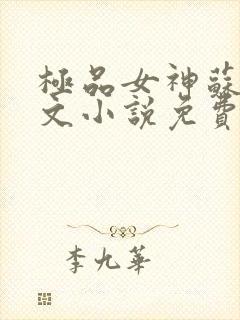 極品女神蘇
文小說免費
李九華